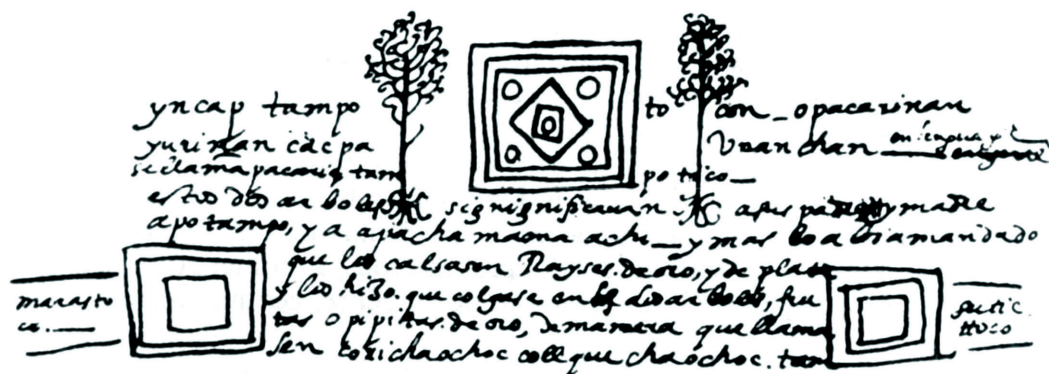 yncap tampo to con_opacarinan
yurinan cacpa Unanchan en lengua
se llama pacarin tam po toco_
estos dos arboles signignificauan a sus padre y madre
apo tampo, y a apachamama achi_ y mas lo abia mandado
que los calsasen Rayses de oro, y de plata
y los hizo. que colgase en los dos arboles, fru
tas o pipitas de oro, de manera que llama
sen corichaochoc collquechaochoc. tam
maras to
co._
sutic
ttoco